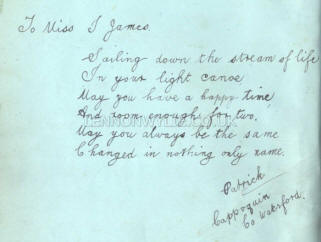 To Miss I James.
Sailing down the stream of life
In your light canoe
May you have a happy time
And room enough for two,
May you always be the same
Changed in nothing only name.
Patrick
Cappoquin
Co Waterford.
LENNONWYLIE.CO.UK